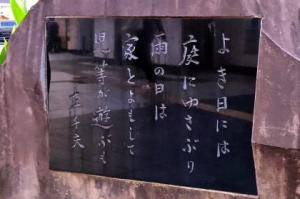 よき日には
庭にゆさぶり
雨の日は
家とよもして
児等が遊ぶも
左千夫